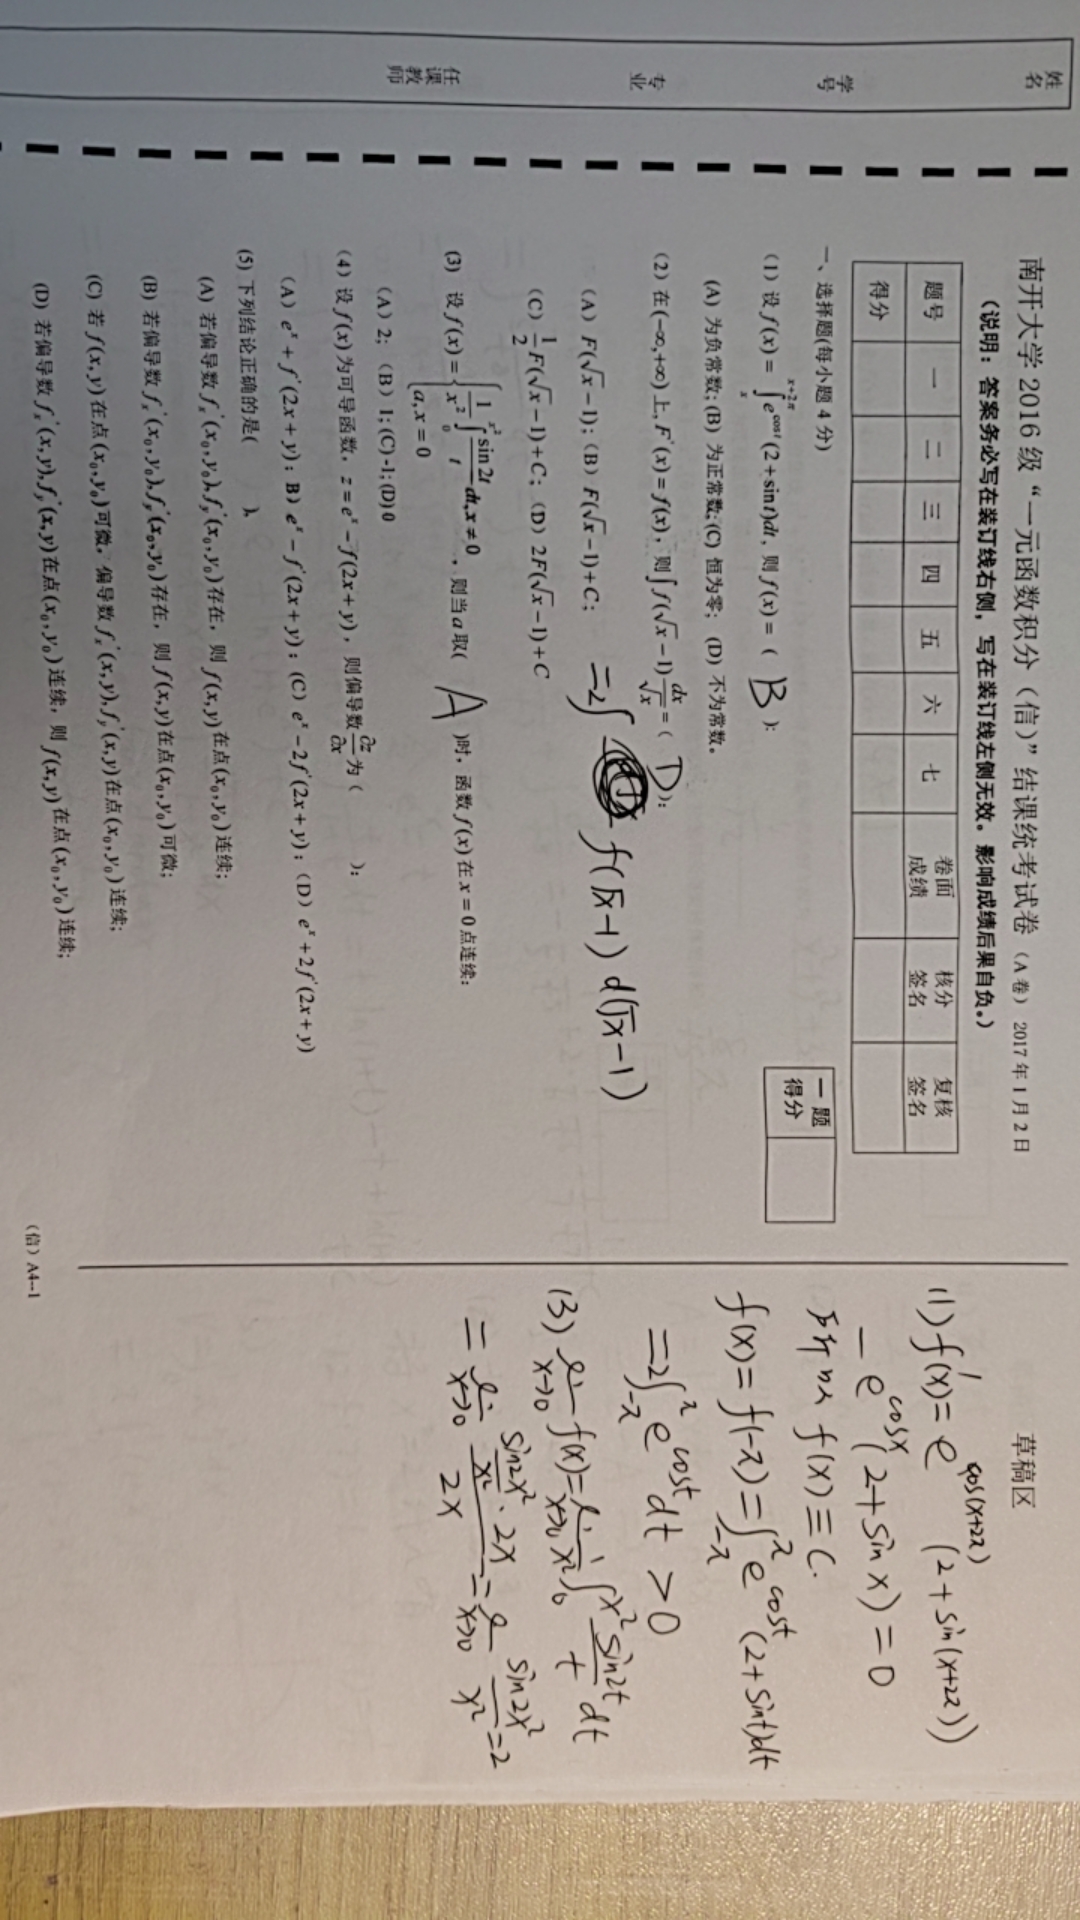 姓名
学号
专业
任课教师
南开大学 2016 级 “一元函数积分（信）” 结课统考试卷（A 卷） 2017 年 1 月 2 日
（说明：答案务必写在装订线右侧，写在装订线左侧无效。影响成绩后果自负。）
题号 一 二 三 四 五 六 七 卷面成绩 核分签名 复核签名
得分
一、选择题(每小题 4 分)
一题得分
（1）设 f(x) = ∫_x^{x+2π} e^{cos t}(2+sin t)dt，则 f(x) = ( B )：
(A) 为负常数；(B) 为正常数；(C) 恒为零； (D) 不为常数。
（2）在(-∞,+∞)上, F'(x) = f(x)，则∫ f(√x -1) dx/√x = ( D )：
（A）F(√x -1)；（B）F(√x -1)+C；
= 2∫ f(√x-1) d(√x-1)
（C）1/2 F(√x -1)+C；（D）2F(√x -1)+C
(3) 设 f(x) = { 1/x² ∫_0^{x²} sin 2t/t dt, x ≠ 0
a, x = 0 ，则当 a 取( A )时，函数 f(x) 在 x = 0 点连续：
（A）2；（B）1；(C)-1；(D)0
（4）设 f(x) 为可导函数，z = e^x - f(2x+y)，则偏导数 ∂z/∂x 为（ ）：
（A）e^x + f'(2x+y)；B）e^x - f'(2x+y)；(C) e^x - 2f'(2x+y)；（D）e^x + 2f'(2x+y)
(5) 下列结论正确的是( ).
(A) 若偏导数 f_x'(x₀,y₀), f_y'(x₀,y₀) 存在，则 f(x,y) 在点 (x₀,y₀) 连续；
(B) 若偏导数 f_x'(x₀,y₀), f_y'(x₀,y₀) 存在，则 f(x,y) 在点 (x₀,y₀) 可微；
(C) 若 f(x,y) 在点 (x₀,y₀) 可微，偏导数 f_x'(x,y), f_y'(x,y) 在点 (x₀,y₀) 连续；
(D) 若偏导数 f_x'(x,y), f_y'(x,y) 在点 (x₀,y₀) 连续，则 f(x,y) 在点 (x₀,y₀) 连续；
（信）A4—1
草稿区
(1) f'(x) = e^{cos(x+2π)} (2+sin(x+2π))
- e^{cosx} (2+sin x) = 0
所以 f(x) ≡ C.
f(x) = f(-π) = ∫_{-π}^{π} e^{cost} (2+sint)dt
= 2∫_{-π}^{π} e^{cost} dt > 0
(3) lim_{x→0} f(x) = lim_{x→0} 1/x² ∫_0^{x²} sin2t/t dt
= lim_{x→0} (sin2x²/x² · 2x)/2x = lim_{x→0} sin2x²/x² = 2